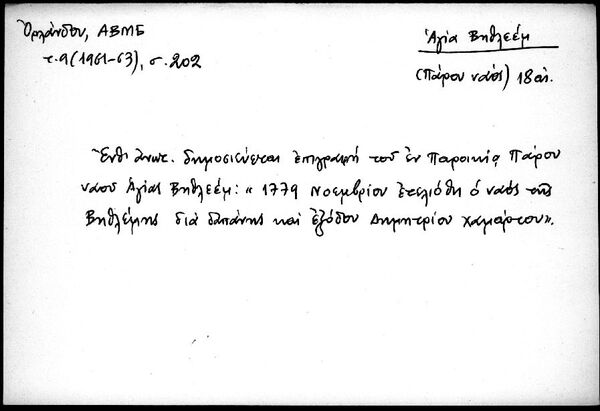 Ὀρλάνδου, ΑΒΜΕ
τ. 9 (1961-63), σ. 202
Ἁγία Βηθλεέμ
(Πάρου ναός) 18 αἰ.
Ἔνθ' ἀνωτ. δημοσιεύεται ἐπιγραφή τοῦ ἐν Παροικίᾳ Πάρου
ναοῦ Ἁγίας Βηθλεέμ: " 1779 Νοεμβρίου ἐτελιόθη ὁ ναός της
Βηθλέμης διά δαπάνης καί ἐξόδου Δημητρίου Χαμάρτου".